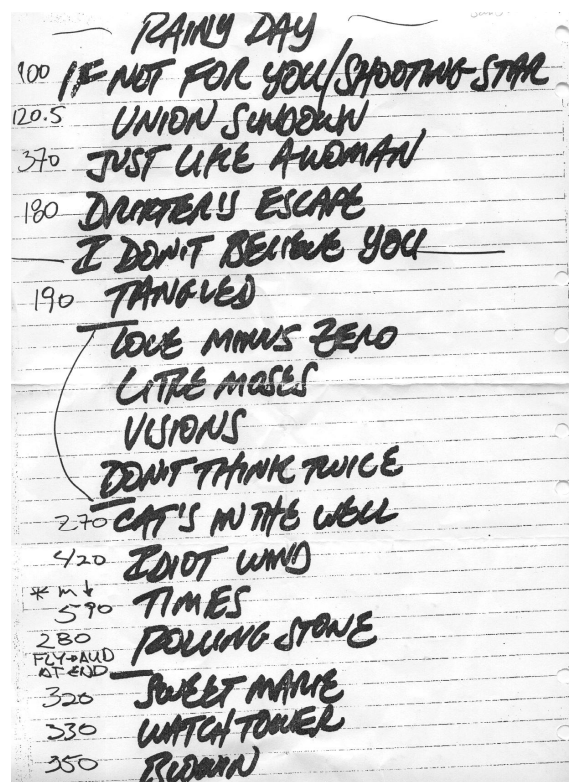 RAINY DAY
100 IF NOT FOR YOU/SHOOTING STAR
120.5 UNION SUNDOWN
370 JUST LIKE A WOMAN
180 DRIFTER'S ESCAPE
I DON'T BELIEVE YOU
190 TANGLED
LOVE MINUS ZERO
LITTLE MOSES
VISIONS
DON'T THINK TWICE
270 CAT'S IN THE WELL
420 IDIOT WIND
* m ↓
590 TIMES
280 ROLLING STONE
FLY→AUD
AT END
320 SWEET MARIE
330 WATCHTOWER
350